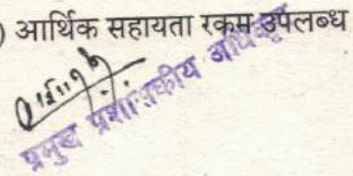 ) आर्थिक सहायता रकम उपलब्ध
प्रमुख प्रशासकीय